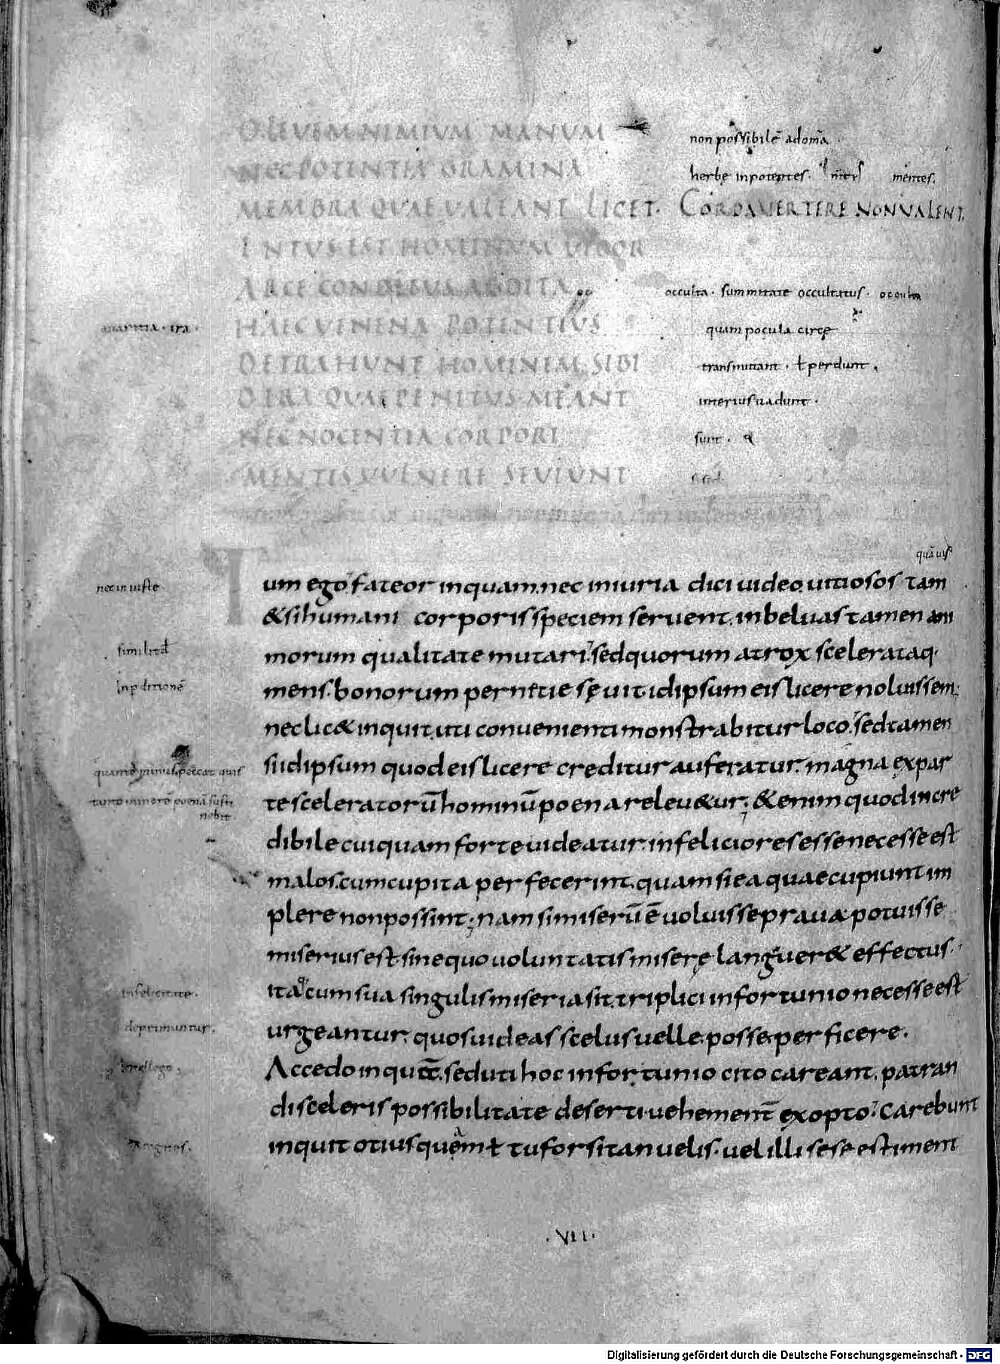 O LEVEM NIMIUM MANUM non possibilē adomā
NEC POTENTIA GRAMINA herbe inpotentes. mentes.
MEMBRA QUAE VALEANT LICET. CORDA VERTERE NON VALENT.
INTUS EST HOMINUM VIGOR
ARCE CONDITUS ABDITA occulta. summitate occultatus. occulta
HAEC VENENA POTENTIUS quam pocula circę
DETRAHUNT HOMINEM SIBI transmutant. ł perdunt.
DIRA QUAE PENITUS MEANT interius uadunt.
NEC NOCENTIA CORPORI sunt. &
MENTIS VULNERE SEVIUNT
quāuis
Tum ego fateor inquam. nec iniuria dici uideo uitiosos tam
nec iniuste
&si humani corporis speciem seruent. in beluas tamen ani
morum qualitate mutari. sed quorum atrox scelerataq.
mens. bonorum pernitie sęuit. id ipsum eis licere noluissem.
nec lic& inquit. uti convenienti monstrabitur loco. sed tamen
si id ipsum quod eis licere creditur auferatur. magna ex par
te sceleratorū hominū poena releu&ur. &enim quod incre
dibile cuiquam forte uideatur. infeliciores esse necesse est
malos. cum cupita perfecerint. quam si ea quae cupiunt im
plere non possint. nam si miserū ē uoluisse praua. potuisse
miserius est. sine quo uoluntatis miserę langueret effectus.
itaq cum sua singulis miseria sit. triplici infortunio necesse est
infelicitate.
urgeantur. quos uideas scelus uelle. posse. perficere.
deprimuntur.
Accedo inquā. sed uti hoc infortunio cito careant. patran
di sceleris possibilitate deserti. uehementē exopto. Carebunt
inquit otius quam ł tu forsitan uelis. uel illi sese estiment
.VII.
Digitalisierung gefördert durch die Deutsche Forschungsgemeinschaft - DFG